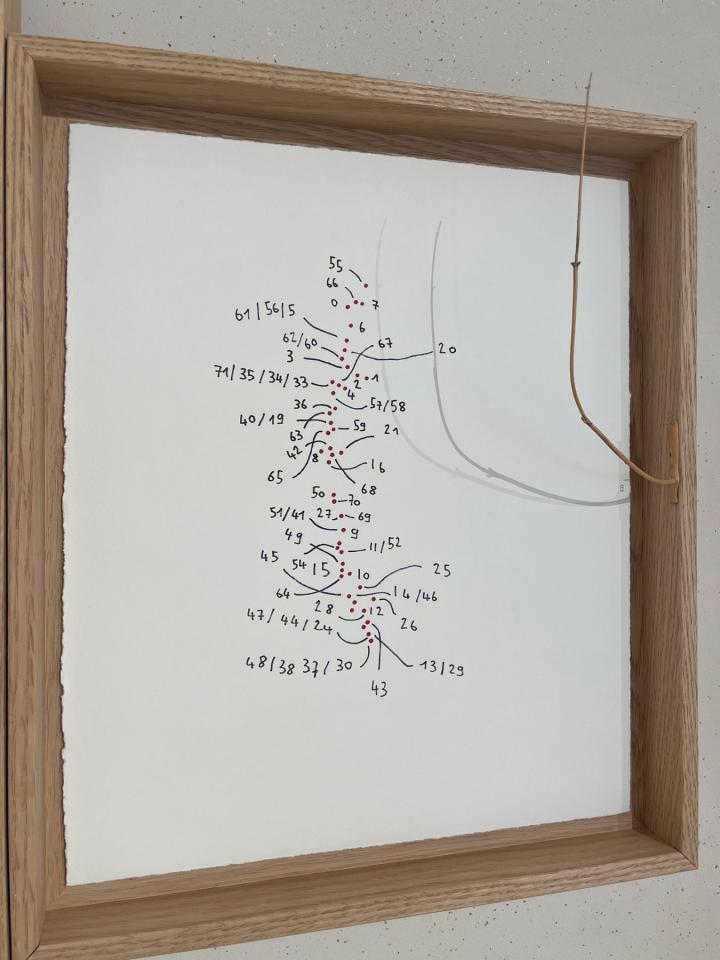 55
66
0 7
61/56/5
6
62/60 67
3 20
71/35/34/33 2 1
4
36 57/58
40/19
63 59 21
42 8
65 16
68
50 70
51/41 27 69
49 9
11/52
45 54 15 10 25
64 14/46
28 12
47/44/24 26
48/38 37/30 13/29
43